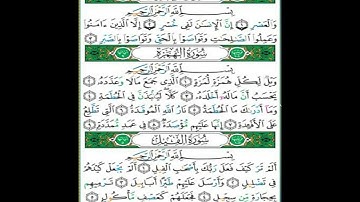 بِسْمِ اللَّهِ الرَّحْمَٰنِ الرَّحِيمِ
وَالْعَصْرِ ١ إِنَّ الْإِنسَانَ لَفِي خُسْرٍ ٢ إِلَّا الَّذِينَ آمَنُوا
وَعَمِلُوا الصَّالِحَاتِ وَتَوَاصَوْا بِالْحَقِّ وَتَوَاصَوْا بِالصَّبْرِ ٣
سُورَةُ الْهُمَزَةِ
بِسْمِ اللَّهِ الرَّحْمَٰنِ الرَّحِيمِ
وَيْلٌ لِّكُلِّ هُمَزَةٍ لُّمَزَةٍ ١ الَّذِي جَمَعَ مَالًا وَعَدَّدَهُ ٢
يَحْسَبُ أَنَّ مَالَهُ أَخْلَدَهُ ٣ كَلَّا لَيُنبَذَنَّ فِي الْحُطَمَةِ ٤
وَمَا أَدْرَاكَ مَا الْحُطَمَةُ ٥ نَارُ اللَّهِ الْمُوقَدَةُ ٦ الَّتِي تَطَّلِعُ
عَلَى الْأَفْئِدَةِ ٧ إِنَّهَا عَلَيْهِم مُّؤْصَدَةٌ ٨ فِي عَمَدٍ مُّمَدَّدَةٍ ٩
سُورَةُ الْفِيلِ
بِسْمِ اللَّهِ الرَّحْمَٰنِ الرَّحِيمِ
أَلَمْ تَرَ كَيْفَ فَعَلَ رَبُّكَ بِأَصْحَابِ الْفِيلِ ١ أَلَمْ يَجْعَلْ كَيْدَهُمْ
فِي تَضْلِيلٍ ٢ وَأَرْسَلَ عَلَيْهِمْ طَيْرًا أَبَابِيلَ ٣ تَرْمِيهِم
بِحِجَارَةٍ مِّن سِجِّيلٍ ٤ فَجَعَلَهُمْ كَعَصْفٍ مَّأْكُولٍ ٥